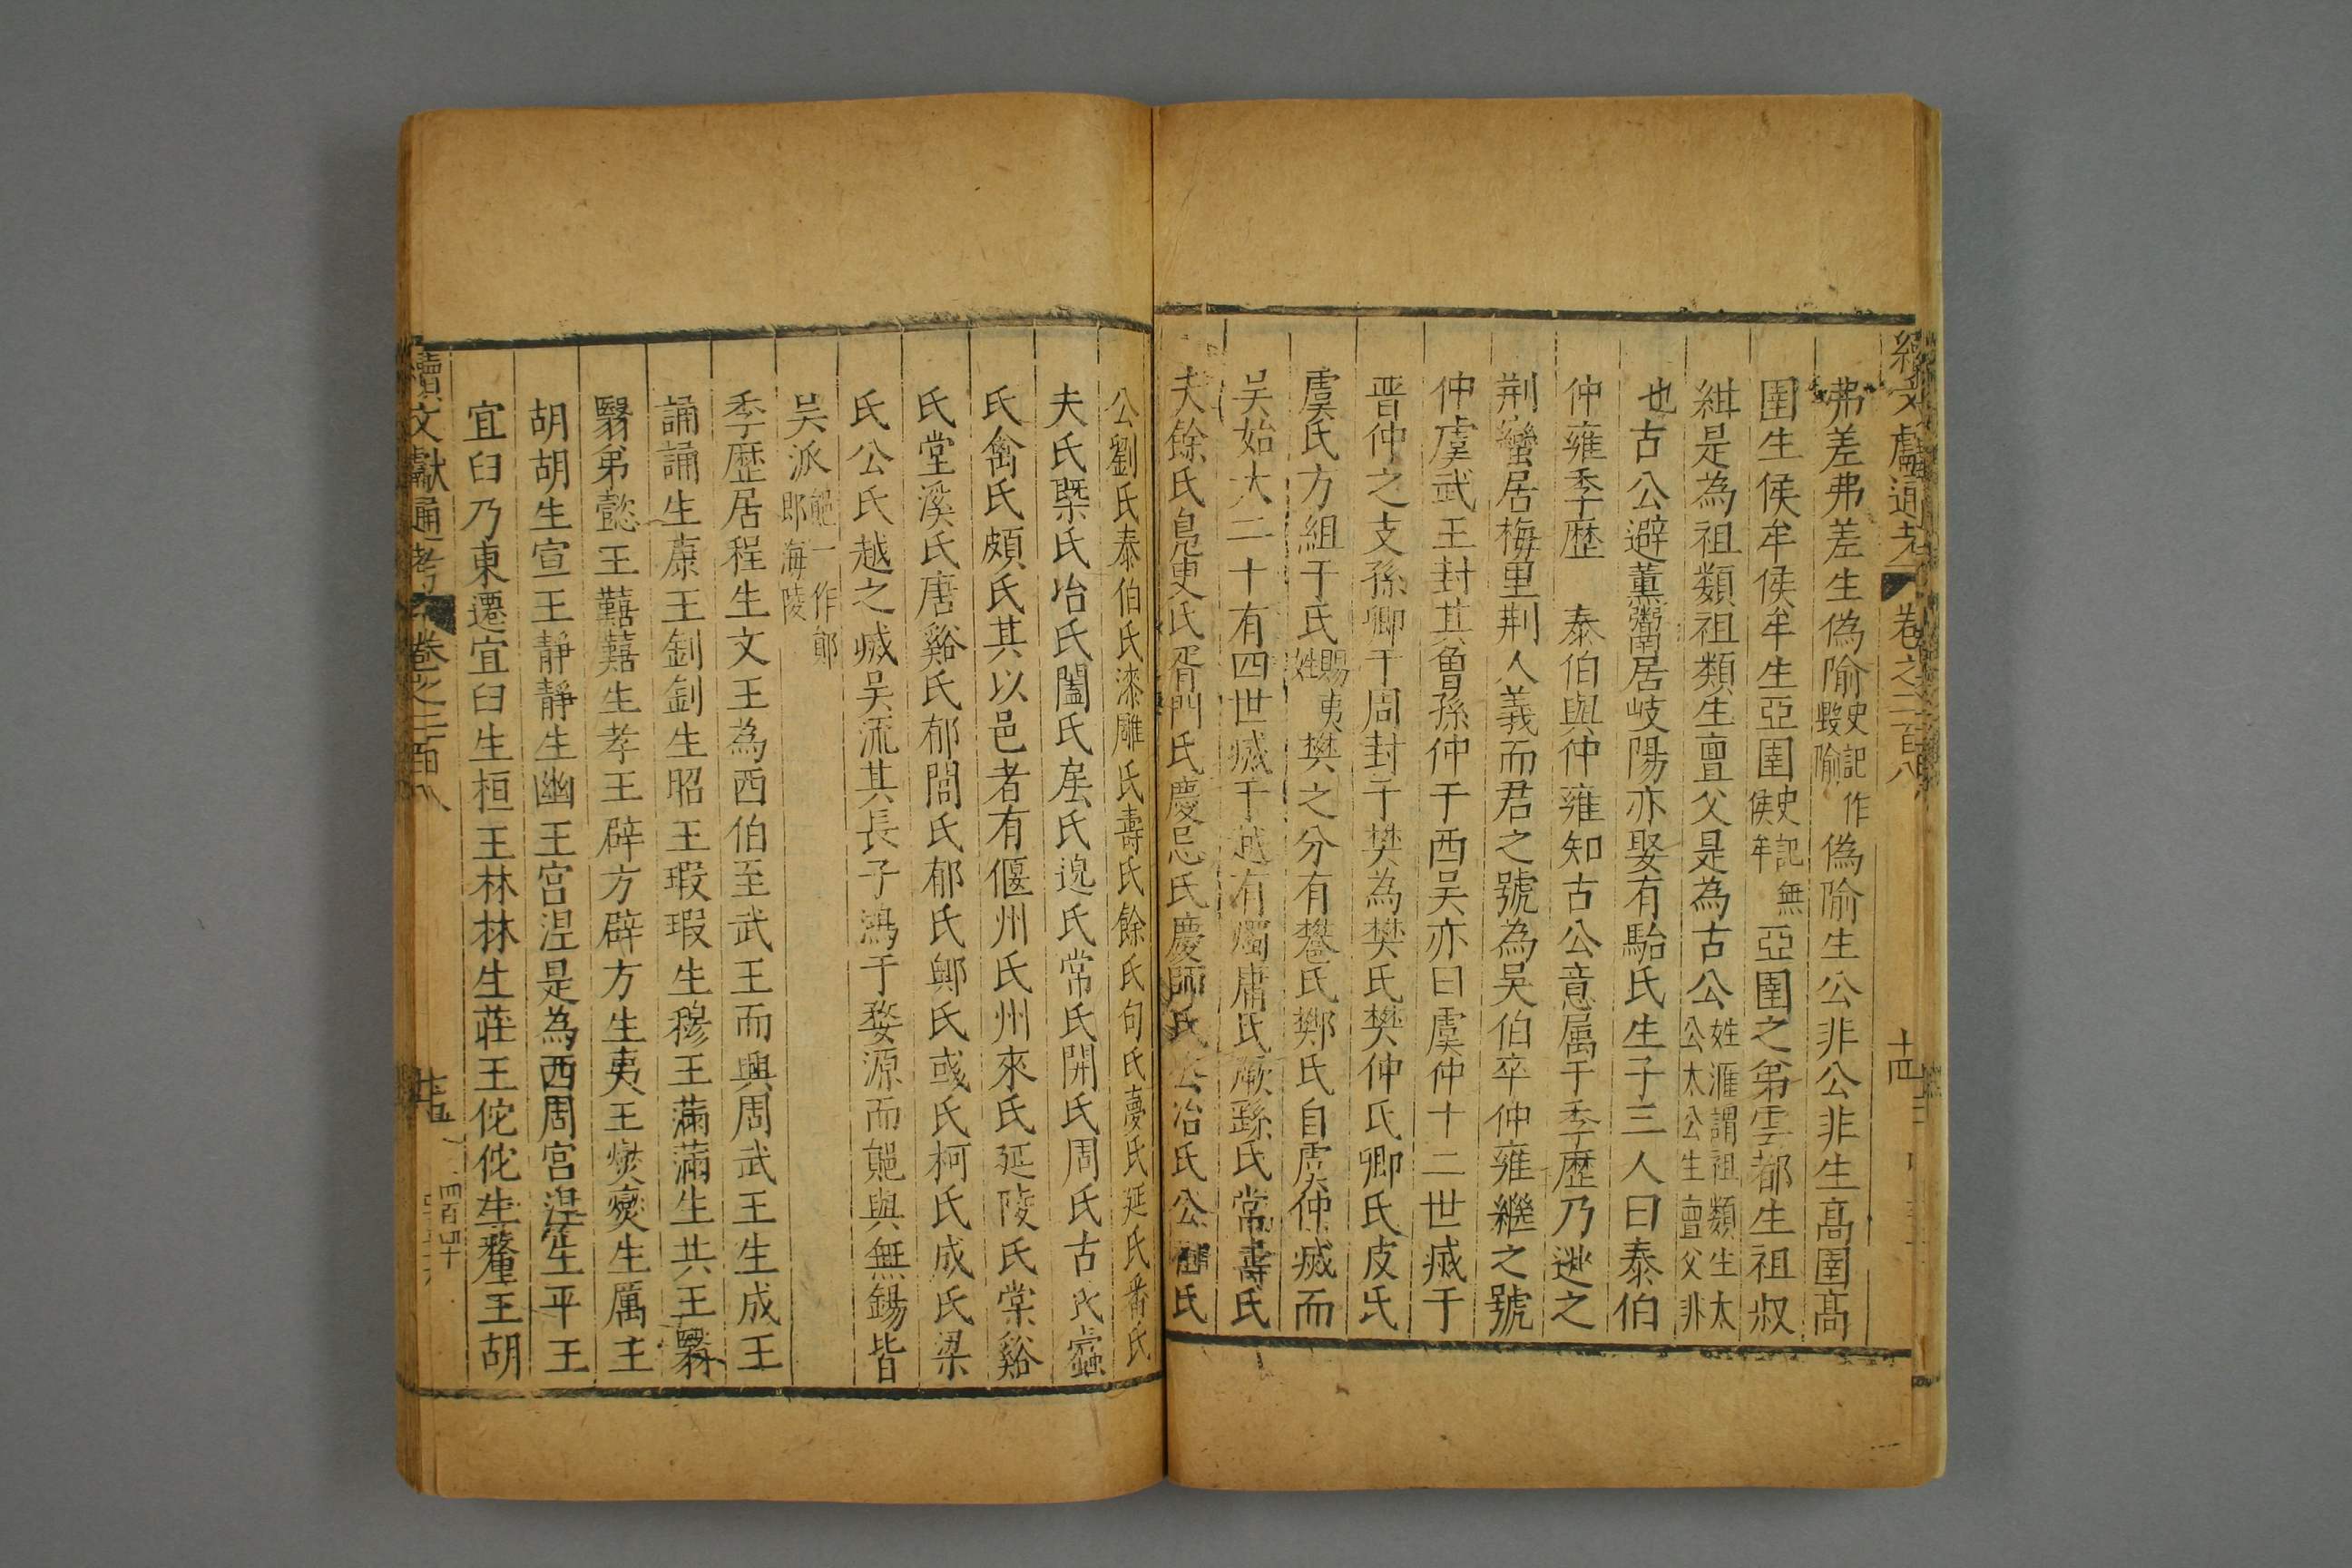 續文獻通考 卷之二百八 十四
弗差弗差生偽隃史記作毀隃偽隃生公非公非生髙圉髙
圉生侯牟侯牟生亞圉史記無侯牟亞圉之弟雲都生祖叔
紺是為祖類祖類生亶父是為古公姓滙謂祖類生太公太公生亶父非
也古公避薫鬻居岐陽亦娶有駘氏生子三人曰泰伯
仲雍季歴 泰伯與仲雍知古公意属于季歴乃逊之
荆蠻居梅里荆人義而君之號為吴伯卒仲雍繼之號
仲虞武王封其曽孫仲于西吴亦曰虞仲十二世烕于
晋仲之支孫卿于周封于樊為樊氏樊仲氏卿氏皮氏
虞氏方組于氏賜夷姓樊之分有礬氏鄭氏自虞仲烕而
吴始大二十有四世烕于越有燭庸氏厥孫氏常壽氏
夫餘氏鳬吏氏胥門氏慶忌氏慶師氏公冶氏公氏
公劉氏泰伯氏漆雕氏壽氏餘氏句氏憂氏延氏番氏
夫氏槩氏冶氏闔氏矦氏逸氏常氏開氏周氏古氏蠱
氏禽氏頗氏其以邑者有偃州氏州來氏延陵氏棠谿
氏堂溪氏唐谿氏郁閻氏郁氏鄓氏彧氏柯氏成氏梁
氏公氏越之烕吴流其長子鴻于婺源而䣊與無錫皆
吴派䣊一作鄎即海陵
季歴居程生文王為西伯至武王而興周武王生成王
誦誦生康王釗釗生昭王瑕瑕生穆王滿滿生共王繄
繄弟懿王囏囏生孝王辟方辟方生夷王燮燮生厲王
胡胡生宣王靜靜生幽王宫湼是為西周宫湼生平王
宜臼乃東遷宜臼生桓王林林生莊王佗佗生釐王胡
續文獻通考 卷之二百八 十五